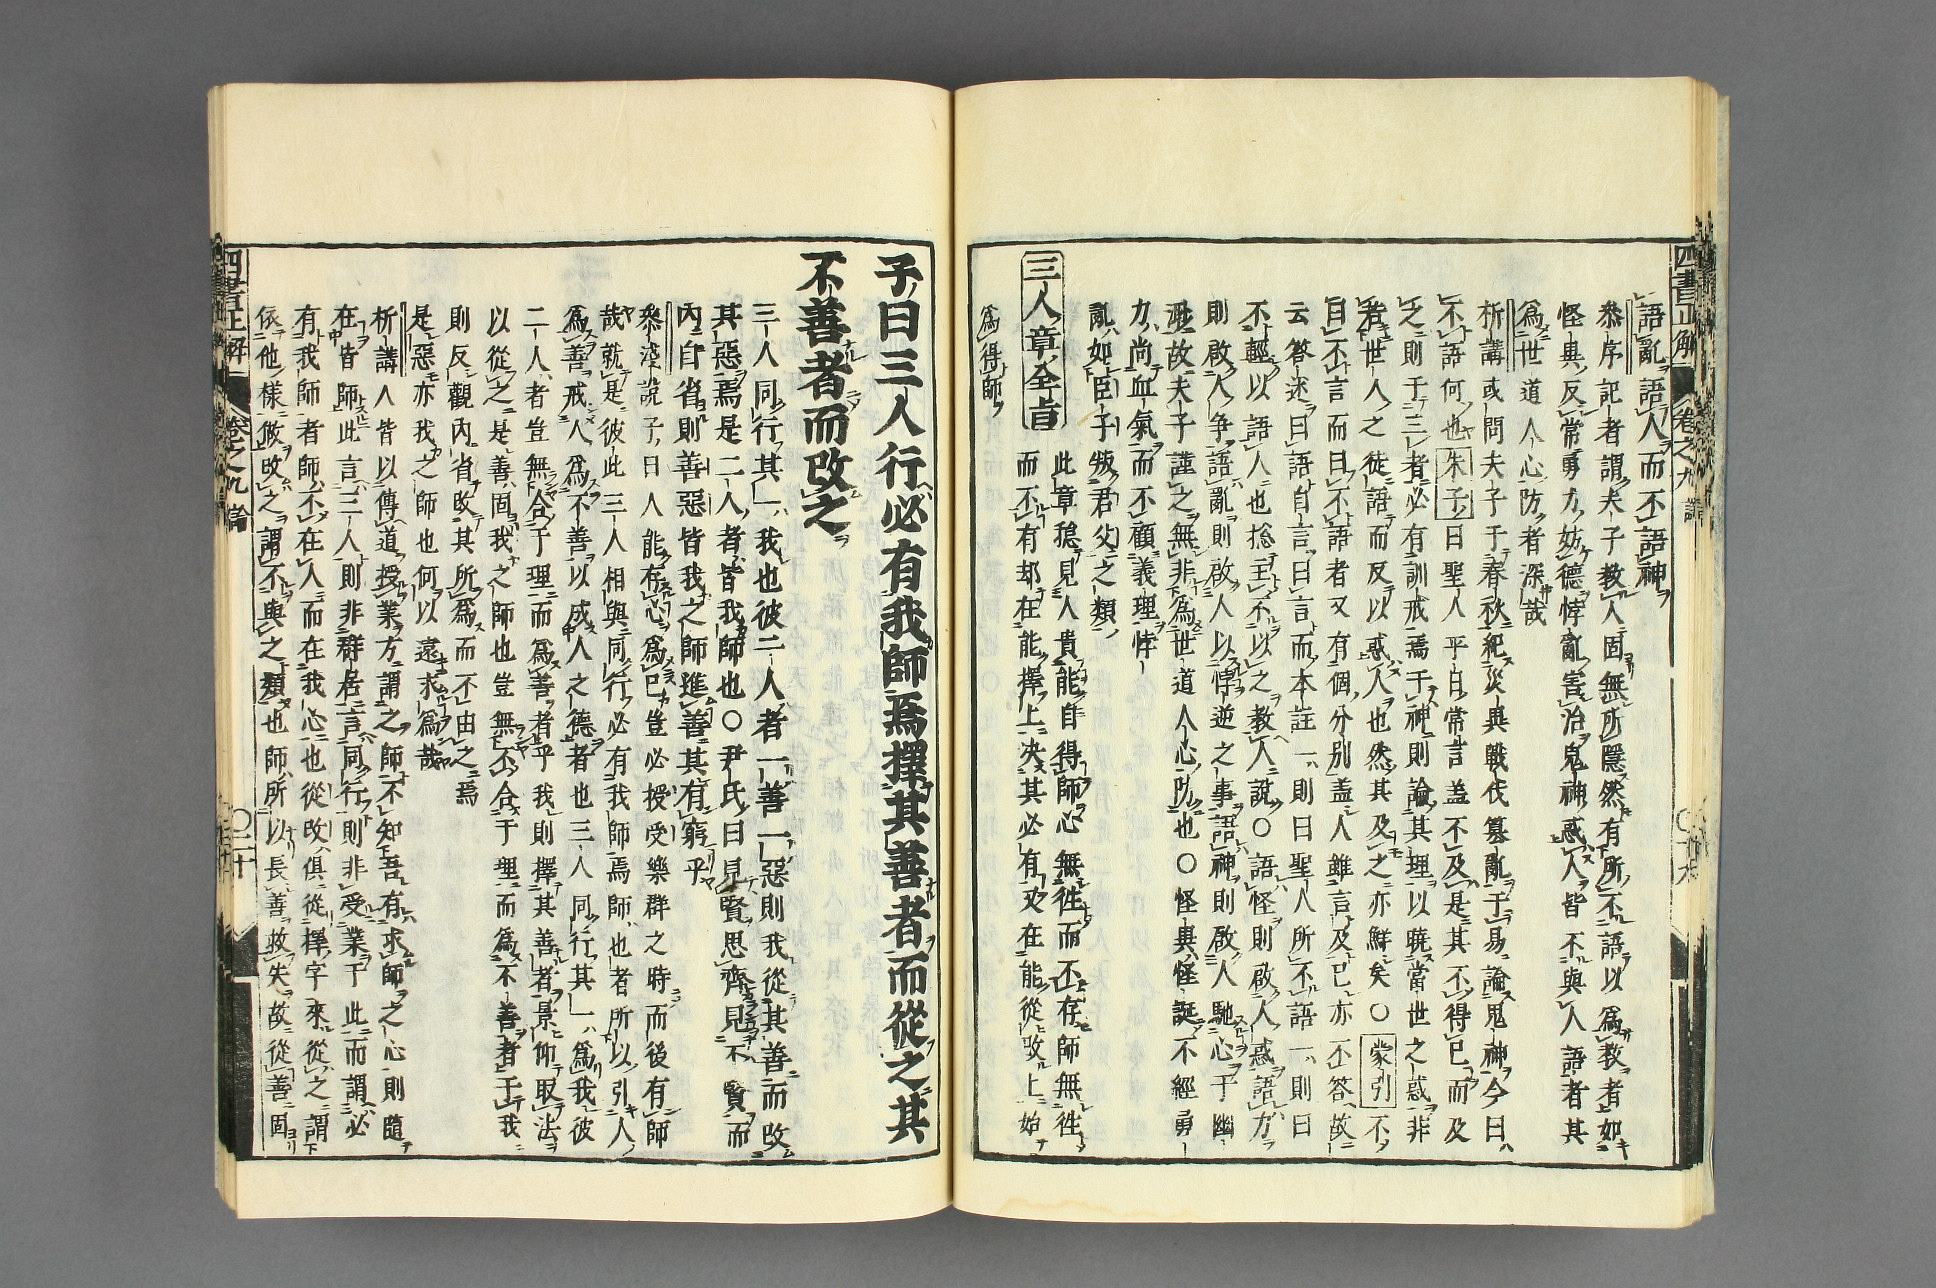 四書正解 卷之九 論
語亂語人而不語神
叅序記者謂夫子教人固無所隱然有所不語以爲教者如
怪異反常勇力妨德悖亂害治鬼神惑人皆不與人語者其
爲世道人心防者深哉
析講或問夫子于春秋紀災異戰伐簒亂于易論鬼神今曰
不語何也朱子曰聖人平日常言盖不及是其不得已而及
之則于三者必有訓戒焉于神則論其理以曉當世之惑非
若世人之徒語而反以惑人也然其及之亦鮮矣〇蒙引不
曰不言而曰不語者又有個分别盖人雖言及已亦不答故
云答述曰語自言曰言而本註一則曰聖人所不語一則曰
不輕以語人也捴主不以之教人說〇語怪則啟人惑語力
則啟人争語亂則啟人以悖逆之事語神則啟人馳心于幽
渺故夫子謹之無非爲世道人心防也〇怪異怪誕不經勇
力尚血氣而不顧義理悖
亂如臣子叛君父之類
三人章全旨
此章揔見人貴能自得師心無徃而不存師無徃
而不有却在能擇上决其必有又在能從改上始
爲得師
子曰三人行必有我師焉擇其善者而從之其
不善者而改之
三人同行其一我也彼二人者一善一惡則我從其善而改
其惡焉是二人者皆我師也〇尹氏曰見賢思齊見不賢而
內自省則善惡皆我之師進善其有窮乎
叅淺說子曰人能存心爲已豈必授受樂群之時而後有師
哉就是彼此三人相與同行必有我師焉師也者所以引人
爲善戒人爲不善以成人之德者也三人同行其一爲我彼
二人者豈無合于理而爲善者乎我則擇其善者景仰取法
以從之是善固我之師也豈無不合于理而爲不善者于我
則反觀內省改其所爲而不由之焉
是惡亦我之師也何以遠求爲哉
析講人皆以傳道授業方謂之師不知吾有求師之心則隨
在皆師此言三人則非群居言同行則非受業于此而謂必
有我師者師不在人而在我心也從改俱從擇字來從之謂
依他樣做改之謂不與之類也師所以長善救失故從善固
四書正解 卷之九 論